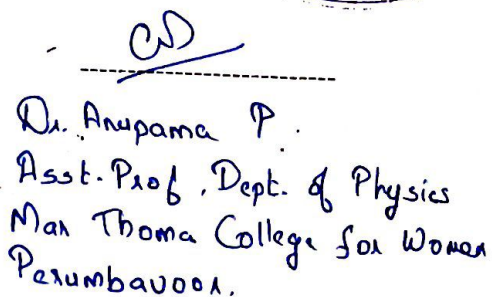 Dr. Anupama P.
Asst. Prof, Dept. of Physics
Mar Thoma College for Women
Perumbavoor.